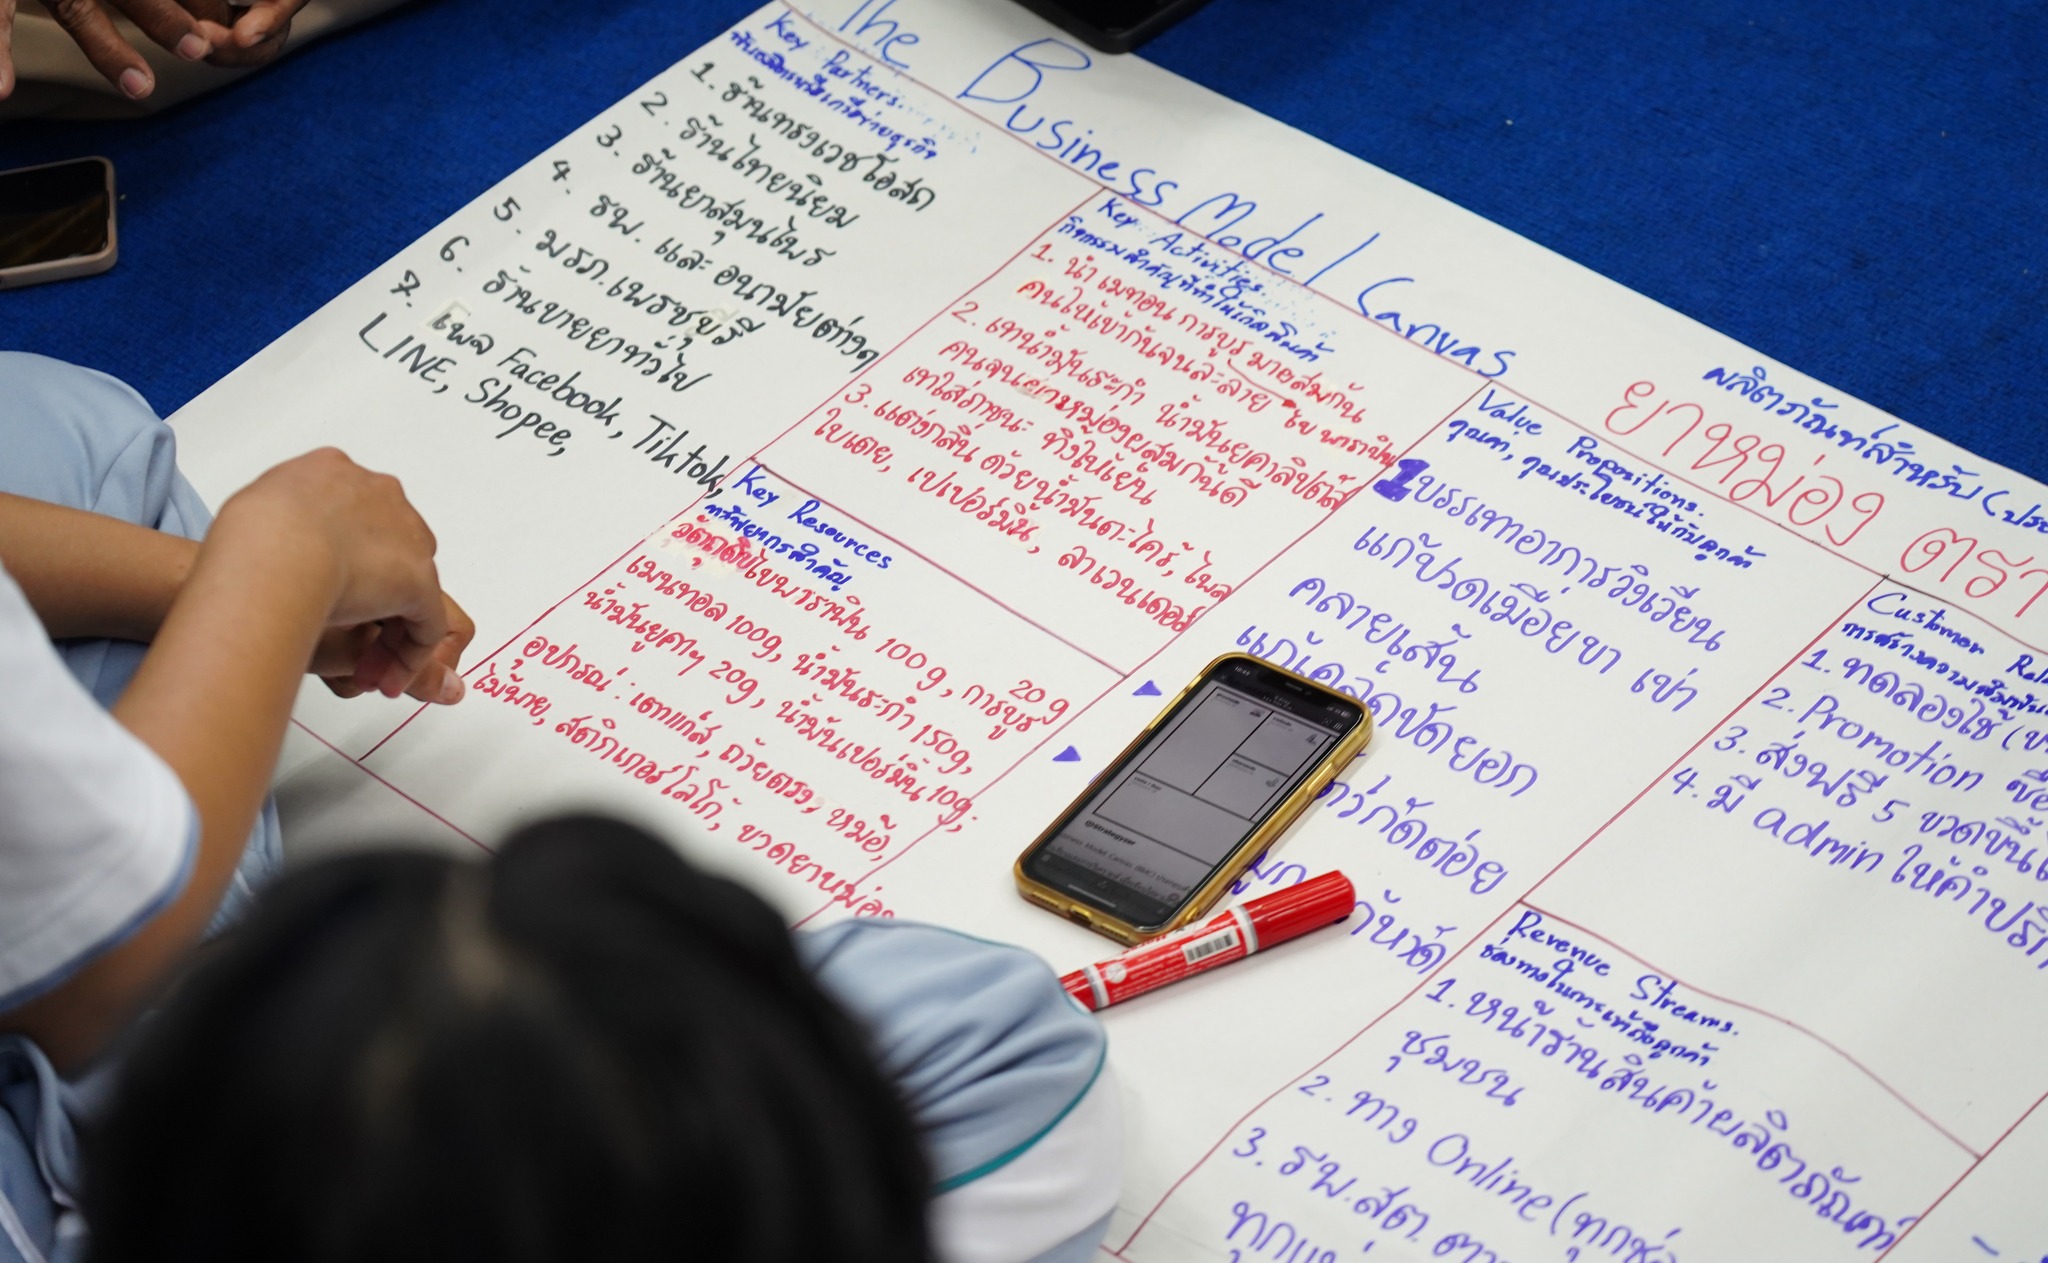 The Business Model Canvas
ผลิตภัณฑ์สำหรับ
ยาหม่อง ตรา
Key Partners.
พันธมิตรหรือเครือข่ายธุรกิจ
1. ร้านทรงเวชโอสถ
2. ร้านไทยนิยม
3. ร้านยาสมุนไพร
4. รพ. และ อนามัยต่างๆ
5. มรภ.เพชรบุรี
6. ร้านขายยาทั่วไป
7. เพจ Facebook, Tiktok,
LINE, Shopee,
Key Activities.
กิจกรรมสำคัญที่ทำให้เกิดสินค้า
1. นำเมทอน การบูร มาผสมกัน
คนให้เข้ากันจนละลาย ไขพาราฟิน
2. เทน้ำมันระกำ น้ำมันยูคาลิปตัส
คนจนยาหม่องผสมกันดี
เทใส่ภาชนะ ทิ้งให้เย็น
3. แต่งกลิ่น ด้วยน้ำมันตะไคร้, ไพล
ใบเตย, เปเปอร์มิ้น, ลาเวนเดอร์
Key Resources
ทรัพยากรสำคัญ
วัตถุดิบไขพาราฟิน 100g, การบูร 20g
เมนทอล 100g, น้ำมันระกำ 150g,
น้ำมันยูคาฯ 20g, น้ำมันเปเปอร์มิ้น 10g,
อุปกรณ์ : เตาแก๊ส, ถ้วยตวง, หม้อ,
ไม้พาย, สติกเกอร์โลโก้, ขวดยาหม่อง
Value Propositions.
คุณค่า, คุณประโยชน์ให้กับลูกค้า
1บรรเทอาการวิงเวียน
แก้ปวดเมื่อยขา เข่า
คลายเส้น
แก้เคล็ดขัดยอก
กัดต่อย
Customer
1. ทดลองใช้
2. Promotion ซื้อ
3. ส่งฟรี 5 ขวดขึ้น
4. มี admin ให้คำปรึก
Revenue Streams.
1. หน้าร้านสินค้าผลิตภัณฑ์
ชุมชน
2. ทาง Online (ทุกช่
3. รพ.สต.
@Strategyzer